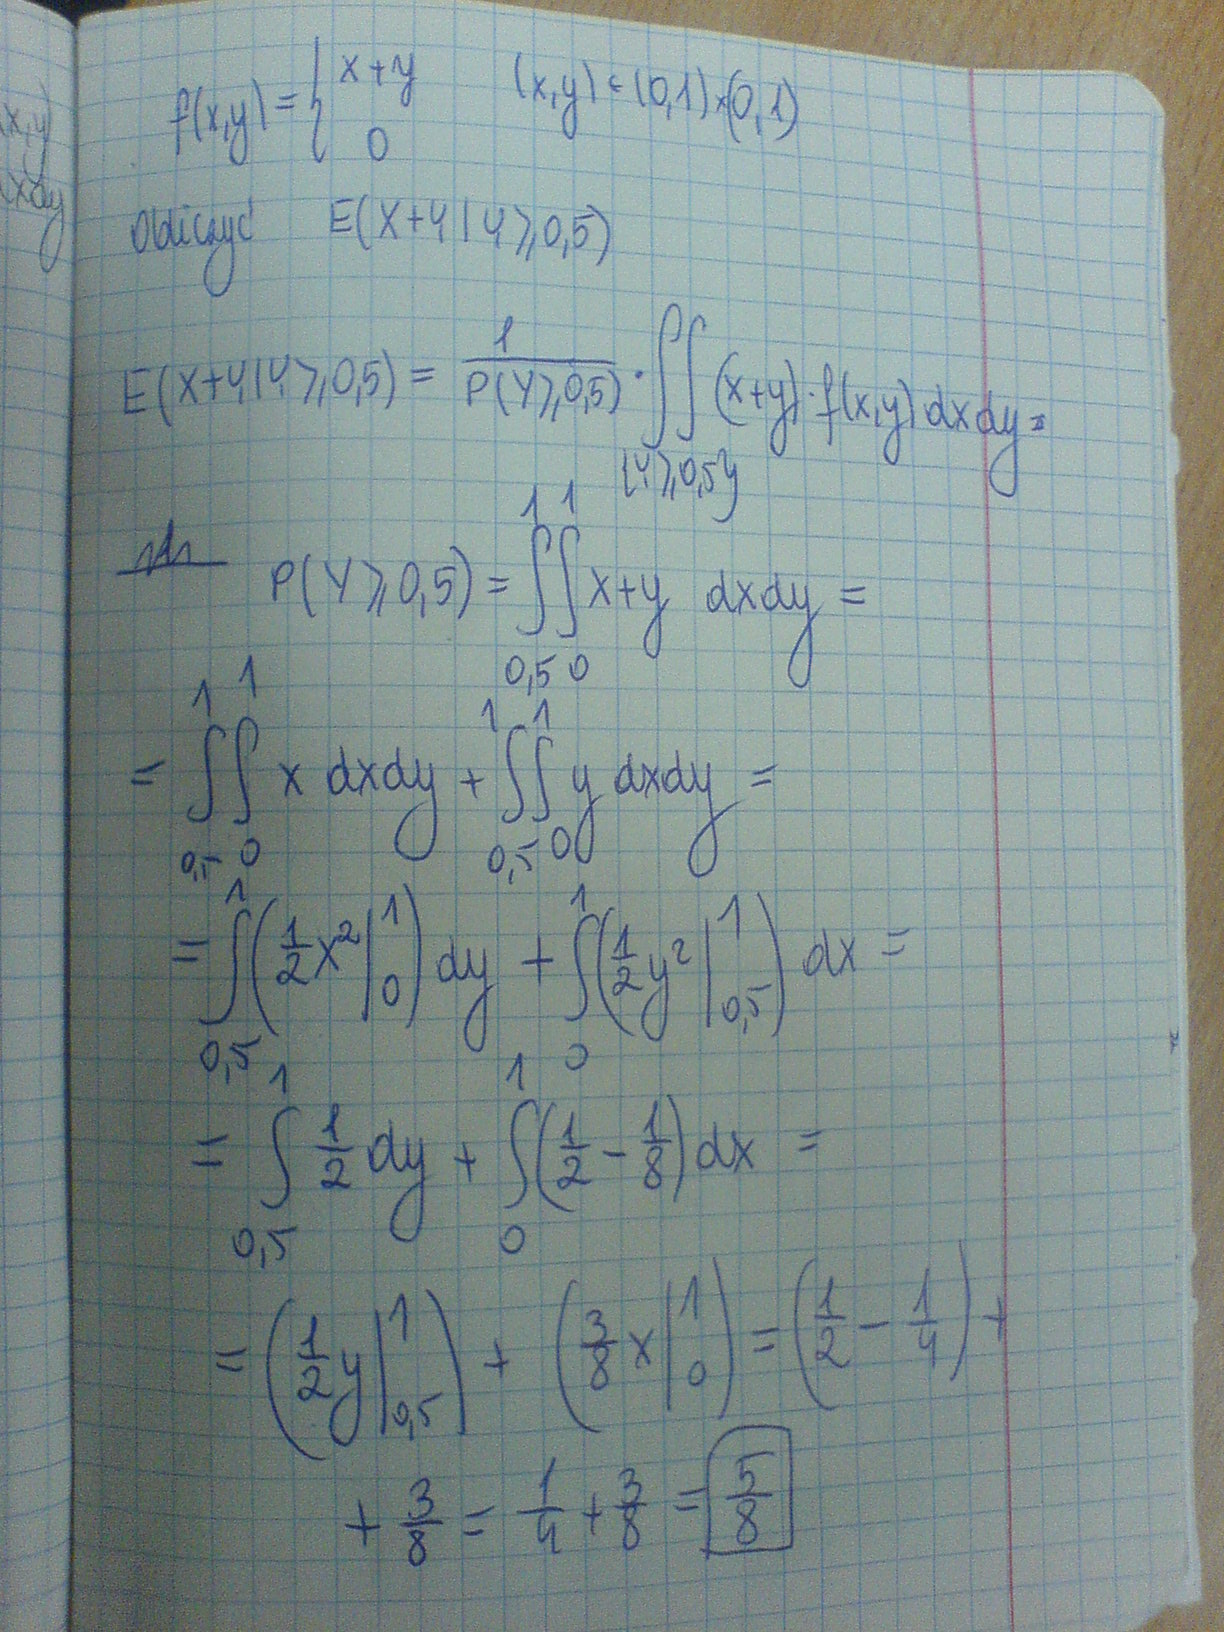 x,y)
xdy
f(x,y) = { x+y (x,y) ∈ (0,1)×(0,1)
0
Obliczyć E(X+Y | Y ≥ 0,5)
E(X+Y | Y ≥ 0,5) = 1/P(Y ≥ 0,5) · ∬_{Y ≥ 0,5} (x+y) · f(x,y) dxdy =
P(Y ≥ 0,5) = ∫_{0,5}^{1} ∫_{0}^{1} x+y dxdy =
= ∫_{0,5}^{1} ∫_{0}^{1} x dxdy + ∫_{0,5}^{1} ∫_{0}^{1} y dxdy =
= ∫_{0,5}^{1} (1/2 x² |_{0}^{1}) dy + ∫_{0}^{1} (1/2 y² |_{0,5}^{1}) dx =
= ∫_{0,5}^{1} 1/2 dy + ∫_{0}^{1} (1/2 - 1/8) dx =
= (1/2 y |_{0,5}^{1}) + (3/8 x |_{0}^{1}) = (1/2 - 1/4) +
+ 3/8 = 1/4 + 3/8 = 5/8